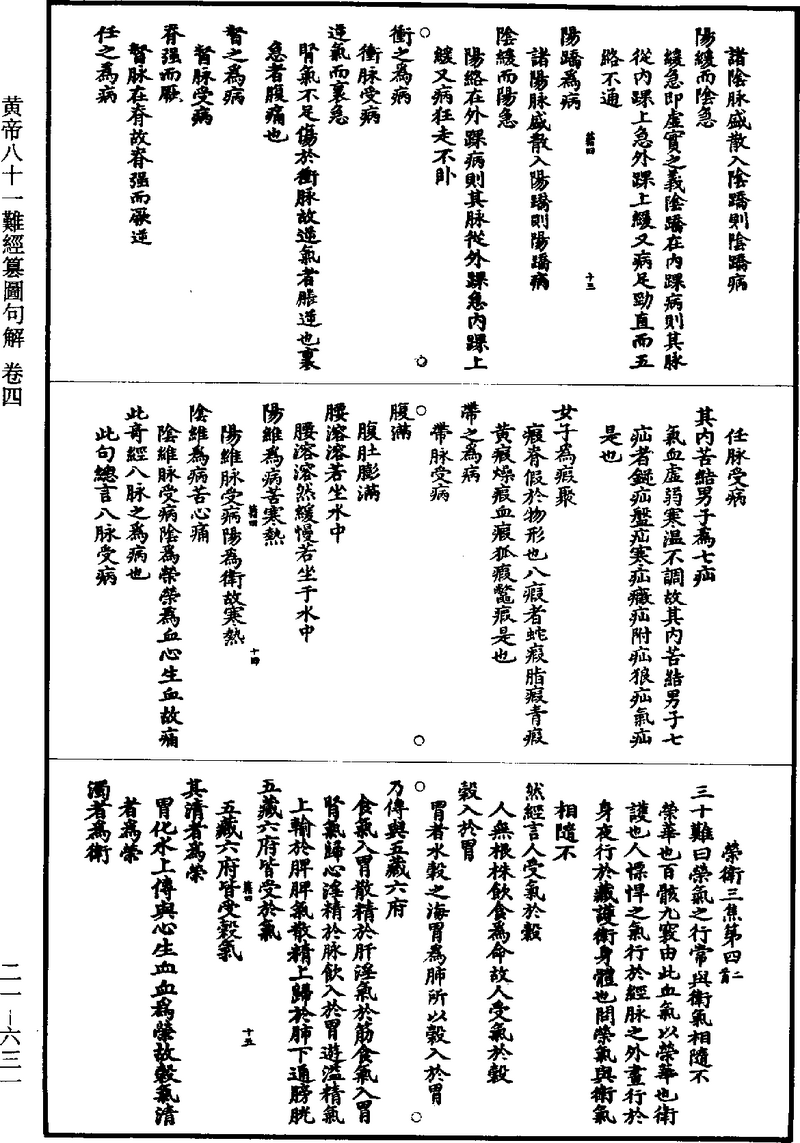 黄帝八十一難經纂圖句解 卷四
二一—六三一
諸陰脉盛散入陰蹻則陰蹻病
陽緩而陰急
緩急即虛實之義陰蹻在内踝病則其脉
從内踝上急外踝上緩又病足勁直而五
路不通
陽蹻爲病
諸陽脉盛散入陽蹻則陽蹻病
陰緩而陽急
陽絡在外踝病則其脉從外踝急内踝上
緩又病狂走不卧
衝之爲病
衝脉受病
逆氣而裏急
腎氣不足傷於衝脉故逆氣者脹逆也裏
急者腹痛也
督之爲病
督脉受病
脊强而厥
督脉在脊故脊强而厥逆
任之爲病
任脉受病
其内苦結男子爲七疝
氣血虛弱寒温不調故其内苦結男子七
疝者㿉疝盤疝寒疝癥疝附疝狼疝氣疝
是也
女子爲瘕聚
瘕脊假於物形也八瘕者蛇瘕脂瘕青瘕
黄瘕燥瘕血瘕狐瘕鱉瘕是也
帶之爲病
帶脉受病
腹滿
腹肚膨滿
腰溶溶若坐水中
腰溶溶然緩慢若坐于水中
陽維爲病苦寒熱
陽維脉受病陽爲衛故寒熱
陰維爲病苦心痛
陰維脉受病陰爲榮榮爲血心生血故痛
此奇經八脉之爲病也
此句總言八脉受病
榮衛三焦第四二首
三十難曰榮氣之行常與衛氣相隨不
榮華也百骸九竅由此血氣以榮華也衛
護也人慓悍之氣行於經脉之外晝行於
身夜行於藏護衛身體也問榮氣與衛氣
相隨不
然經言人受氣於穀
人無根株飲食爲命故人受氣於穀
穀入於胃
胃者水穀之海胃爲肺所以穀入於胃
乃傳與五藏六府
食氣入胃散精於肝淫氣於筋食氣入胃
腎氣歸心淫精於脉飲入於胃遊溢精氣
上輸於脾脾氣散精上歸於肺下通膀胱
五藏六府皆受於氣
五藏六府皆受穀氣
其清者爲榮
胃化水上傳與心生血血爲榮故穀氣清
者爲榮
濁者爲衛